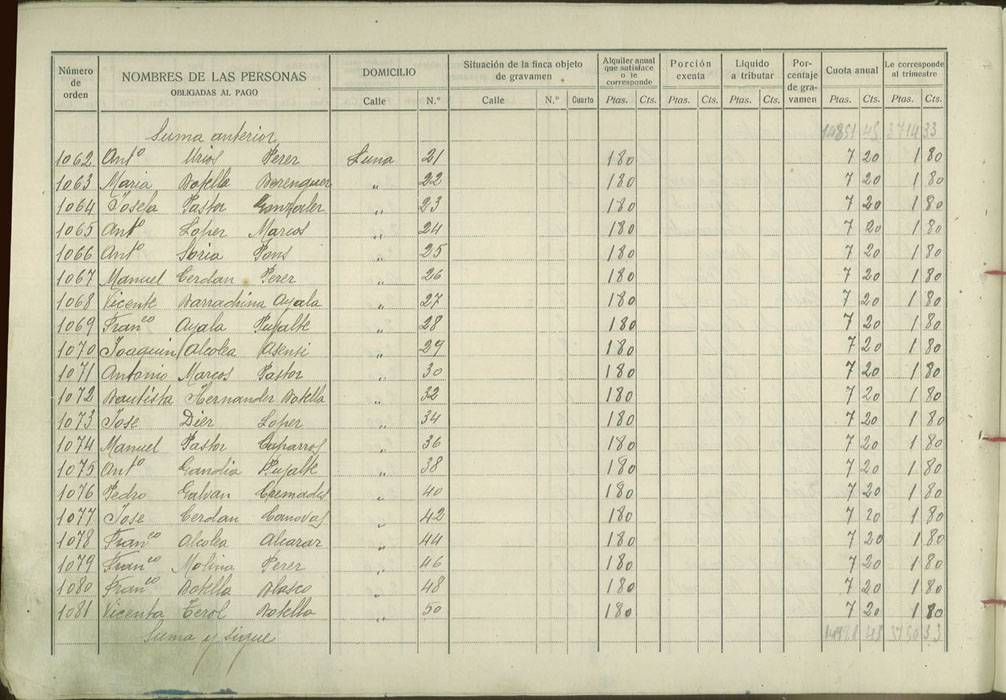 Número de orden
NOMBRES DE LAS PERSONAS
OBLIGADAS AL PAGO
DOMICILIO
Calle N.º
Situación de la finca objeto de gravamen
Calle N.º Cuarto
Alquiler anual que satisface o le corresponde
Ptas. Cts.
Porción exenta
Ptas. Cts.
Líquido a tributar
Ptas. Cts.
Porcentaje de gravamen
Cuota anual
Ptas. Cts.
Le corresponde al trimestre
Ptas. Cts.
Suma anterior 14851 45 3714 33
1062 Antº Urios Perez Luna 21 180 7 20 1 80
1063 Maria Botella Berenguer " 22 180 7 20 1 80
1064 Josefa Pastor Gonzalez " 23 180 7 20 1 80
1065 Antº Lopez Marcos " 24 180 7 20 1 80
1066 Antº Soria Pons " 25 180 7 20 1 80
1067 Manuel Cerdan Perez " 26 180 7 20 1 80
1068 Vicente Barrachina Ayala " 27 180 7 20 1 80
1069 Franco Ayala Pujalte " 28 180 7 20 1 80
1070 Joaquin Alcolea Asensi " 29 180 7 20 1 80
1071 Antonio Marcos Pastor " 30 180 7 20 1 80
1072 Bautista Hernandez Botella " 32 180 7 20 1 80
1073 Jose Diez Lopez " 34 180 7 20 1 80
1074 Manuel Pastor Caparros " 36 180 7 20 1 80
1075 Antº Gandia Pujalte " 38 180 7 20 1 80
1076 Pedro Galvan Cremades " 40 180 7 20 1 80
1077 Jose Cerdan Canovas " 42 180 7 20 1 80
1078 Franco Alcolea Alcaraz " 44 180 7 20 1 80
1079 Franco Molina Perez " 46 180 7 20 1 80
1080 Franco Botella Blasco " 48 180 7 20 1 80
1081 Vicenta Cerol Botella " 50 180 7 20 1 80
Suma y sigue